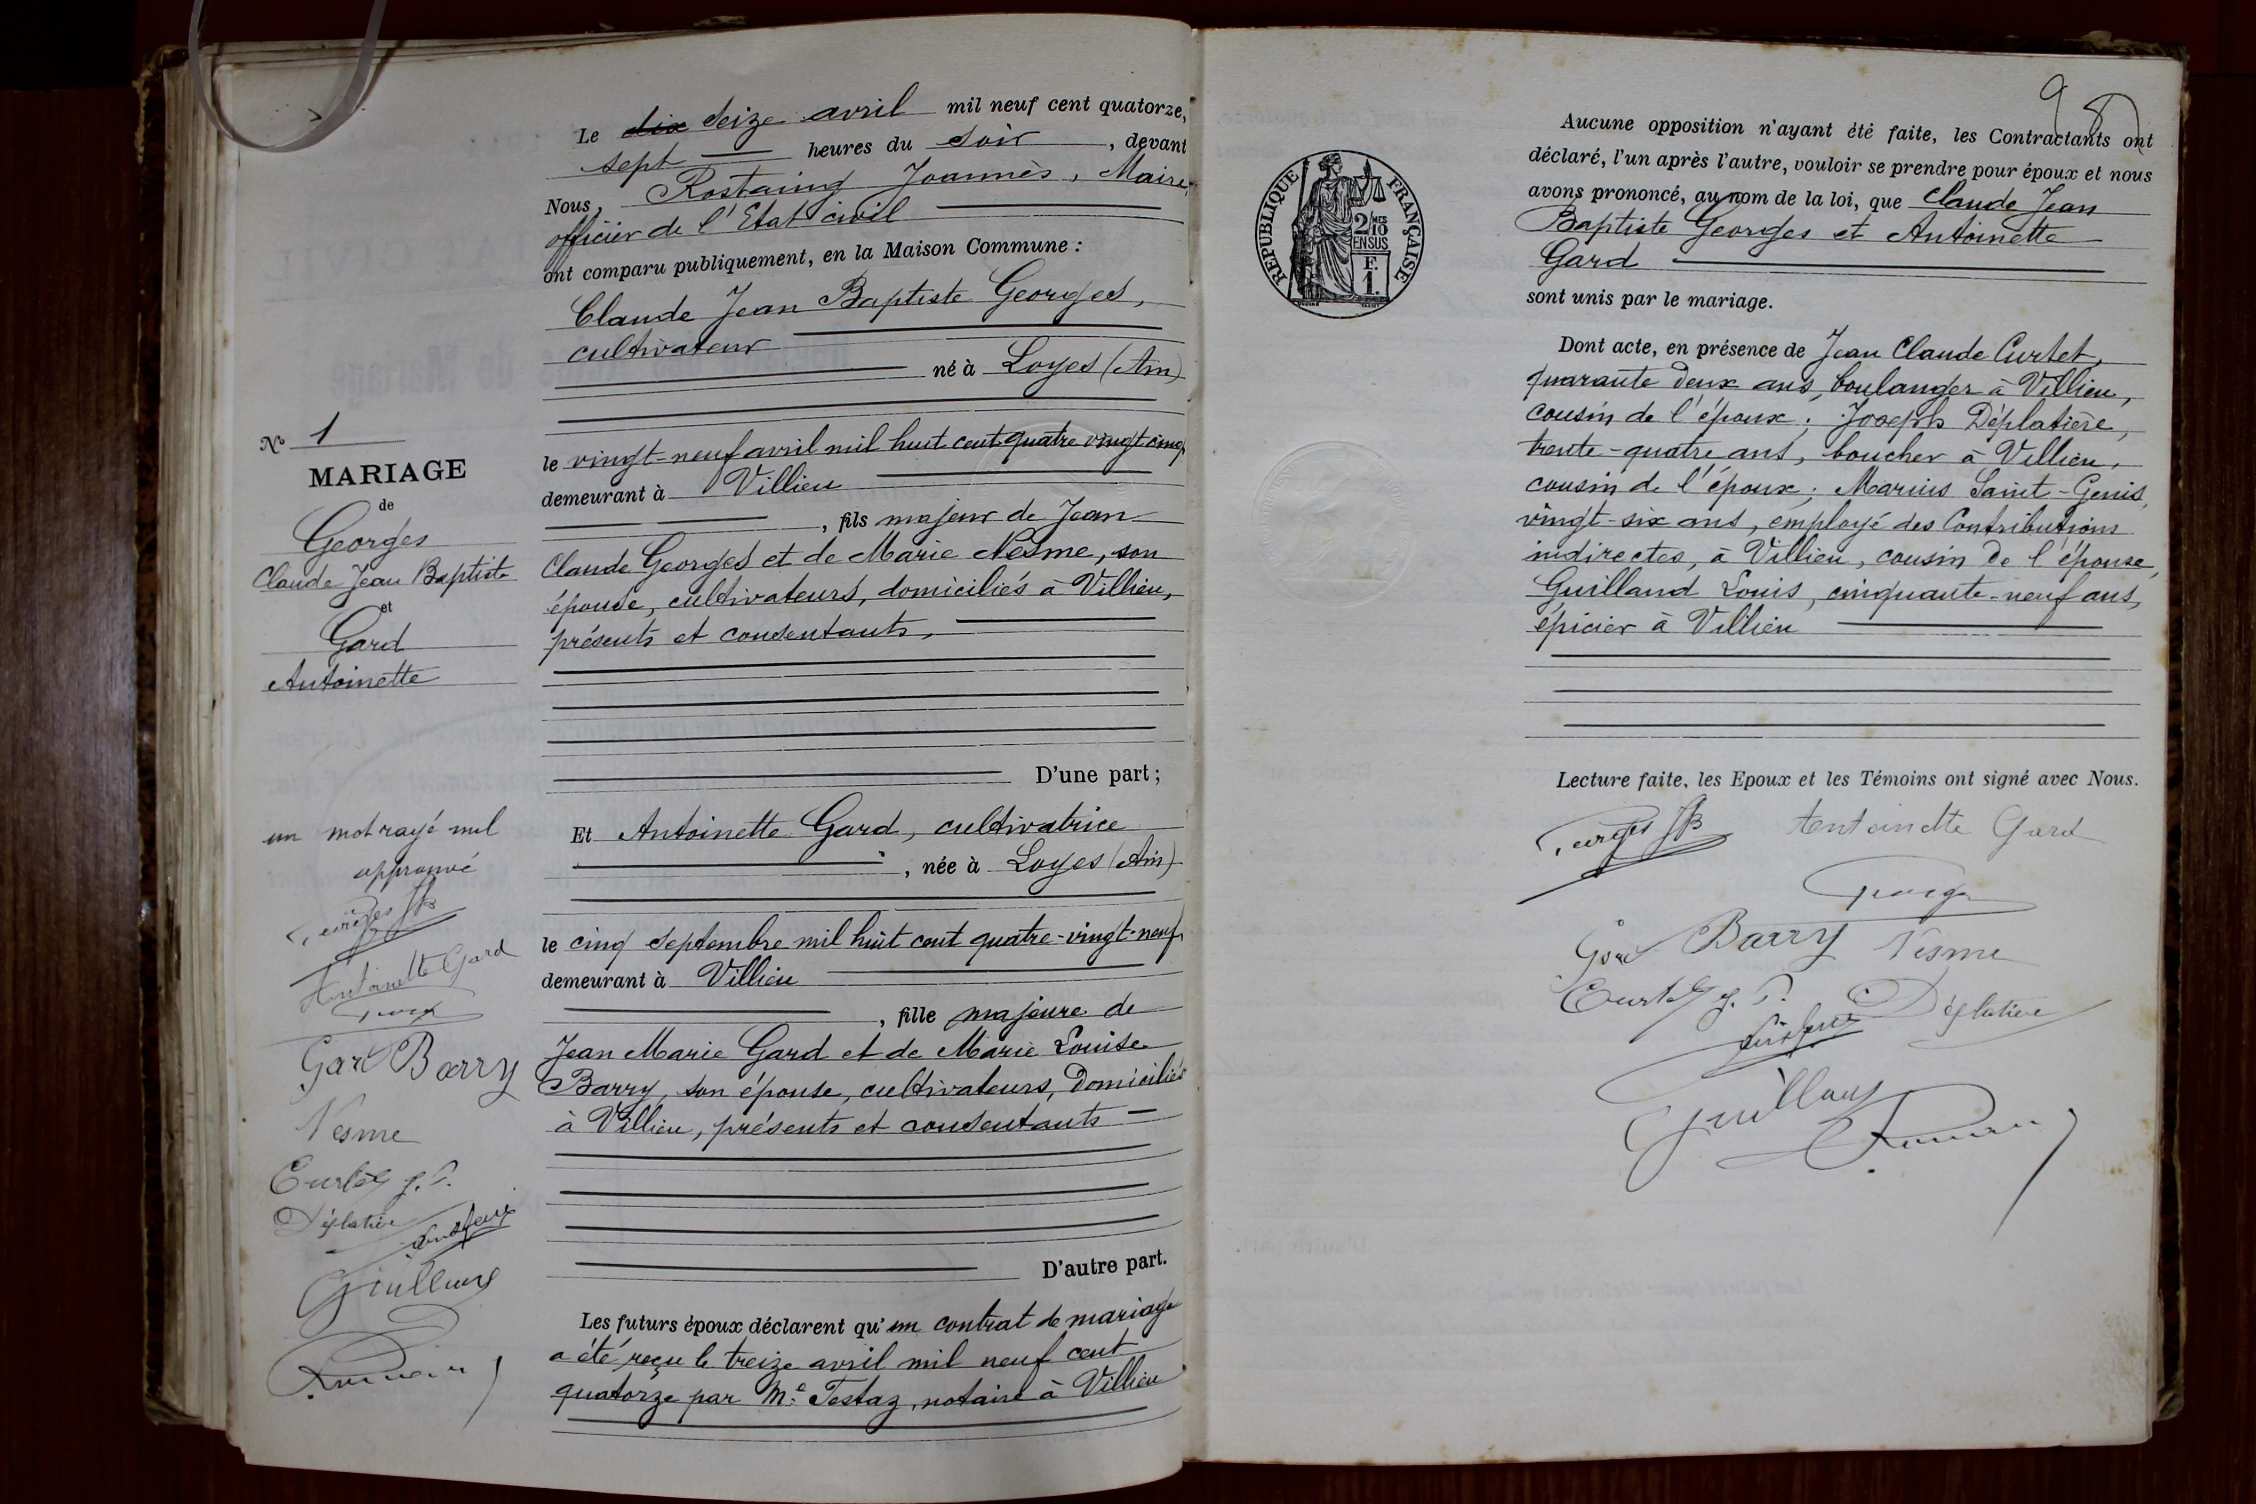 N° 1
MARIAGE
de
Georges
Claude Jean Baptiste
et
Gard
Antoinette
un mot rayé nul
approuvé
Georges JB
Antoinette Gard
Gard Barry
Nesme
Curtet J. C.
Déplatière
Guilland
Le dix seize avril mil neuf cent quatorze,
sept heures du soir, devant
Nous, Rostaing Joannès, Maire,
officier de l'Etat civil
ont comparu publiquement, en la Maison Commune :
Claude Jean Baptiste Georges,
cultivateur
né à Loyes (Ain)
le vingt-neuf avril mil huit cent quatre vingt cinq,
demeurant à Villieu
, fils majeur de Jean
Claude Georges et de Marie Nesme, son
épouse, cultivateurs, domiciliés à Villieu,
présents et consentants,
D'une part ;
Et Antoinette Gard, cultivatrice
, née à Loyes (Ain)
le cinq septembre mil huit cent quatre-vingt-neuf,
demeurant à Villieu
, fille majeure de
Jean Marie Gard et de Marie Louise
Barry, son épouse, cultivateurs, domiciliés
à Villieu, présents et consentants
D'autre part.
Les futurs époux déclarent qu'un contrat de mariage
a été reçu le treize avril mil neuf cent
quatorze par Me Testaz, notaire à Villieu
98
RÉPUBLIQUE FRANÇAISE
2/10 MES
EN SUS
F.
1.
Aucune opposition n'ayant été faite, les Contractants ont
déclaré, l'un après l'autre, vouloir se prendre pour époux et nous
avons prononcé, au nom de la loi, que Claude Jean
Baptiste Georges et Antoinette
Gard
sont unis par le mariage.
Dont acte, en présence de Jean Claude Curtet,
quarante deux ans, boulanger à Villieu,
cousin de l'époux ; Joseph Déplatière,
trente-quatre ans, boucher à Villieu,
cousin de l'époux ; Marius Saint-Genis,
vingt-six ans, employé des Contributions
indirectes, à Villieu, cousin de l'épouse,
Guilland Louis, cinquante-neuf ans,
épicier à Villieu
Lecture faite, les Epoux et les Témoins ont signé avec Nous.
Georges JB Antoinette Gard
Gard Barry Nesme
Curtet J. C. Déplatière
Guilland